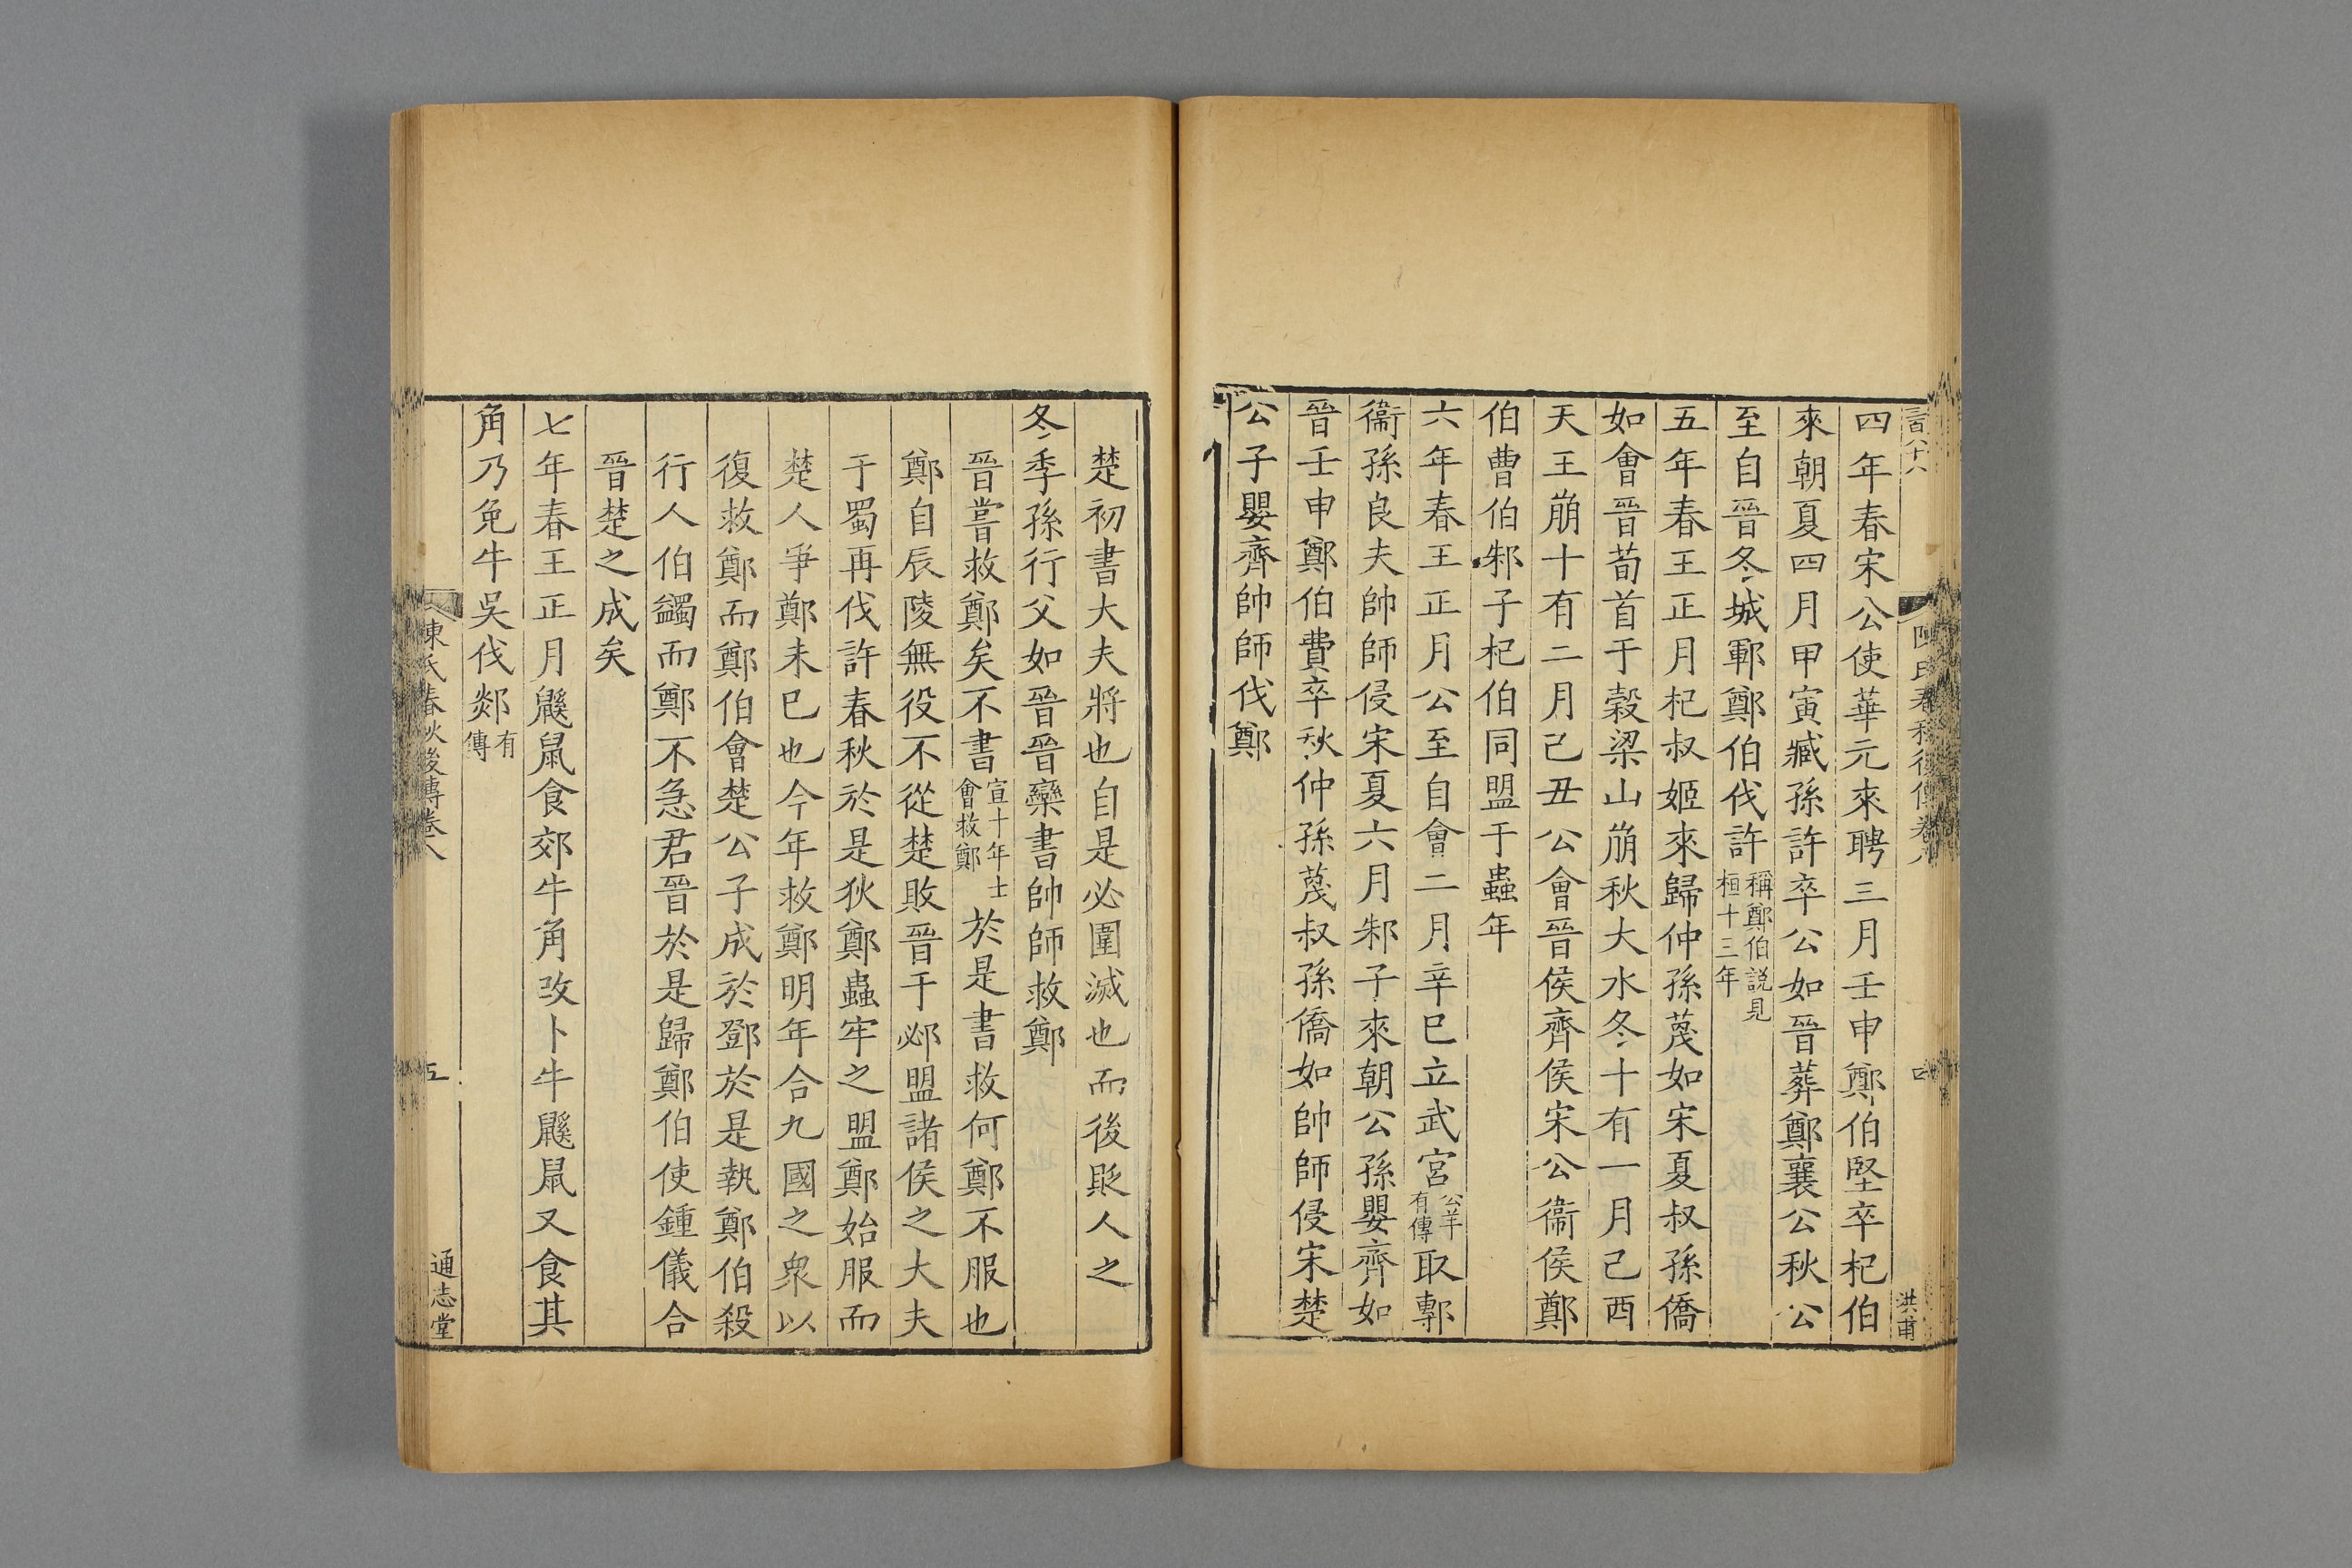 四年春宋公使華元來聘三月壬申鄭伯堅卒杞伯
來朝夏四月甲寅臧孫許卒公如晉葬鄭襄公秋公
至自晉冬城鄆鄭伯伐許稱鄭伯説見桓十三年
五年春王正月杞叔姬來歸仲孫蔑如宋夏叔孫僑
如會晉荀首于穀梁山崩秋大水冬十有一月己酉
天王崩十有二月己丑公會晉侯齊侯宋公衞侯鄭
伯曹伯邾子杞伯同盟于蟲牢
六年春王正月公至自會二月辛巳立武宮公羊有傳取鄟
衞孫良夫帥師侵宋夏六月邾子來朝公孫嬰齊如
晉壬申鄭伯費卒秋仲孫蔑叔孫僑如帥師侵宋楚
公子嬰齊帥師伐鄭
陳氏春秋後傳卷八
四
洪甫
楚初書大夫將也自是必圍滅也而後貶人之
冬季孫行父如晉晉欒書帥師救鄭
晉嘗救鄭矣不書宣十年士會救鄭於是書救何鄭不服也
鄭自辰陵無役不從楚敗晉于邲盟諸侯之大夫
于蜀再伐許春秋於是狄鄭蟲牢之盟鄭始服而
楚人爭鄭未已也今年救鄭明年合九國之衆以
復救鄭而鄭伯會楚公子成於鄧於是執鄭伯殺
行人伯蠲而鄭不急君晉於是歸鄭伯使鍾儀合
晉楚之成矣
七年春王正月鼷鼠食郊牛角改卜牛鼷鼠又食其
角乃免牛吳伐郯有傳
陳氏春秋後傳卷八
五
通志堂